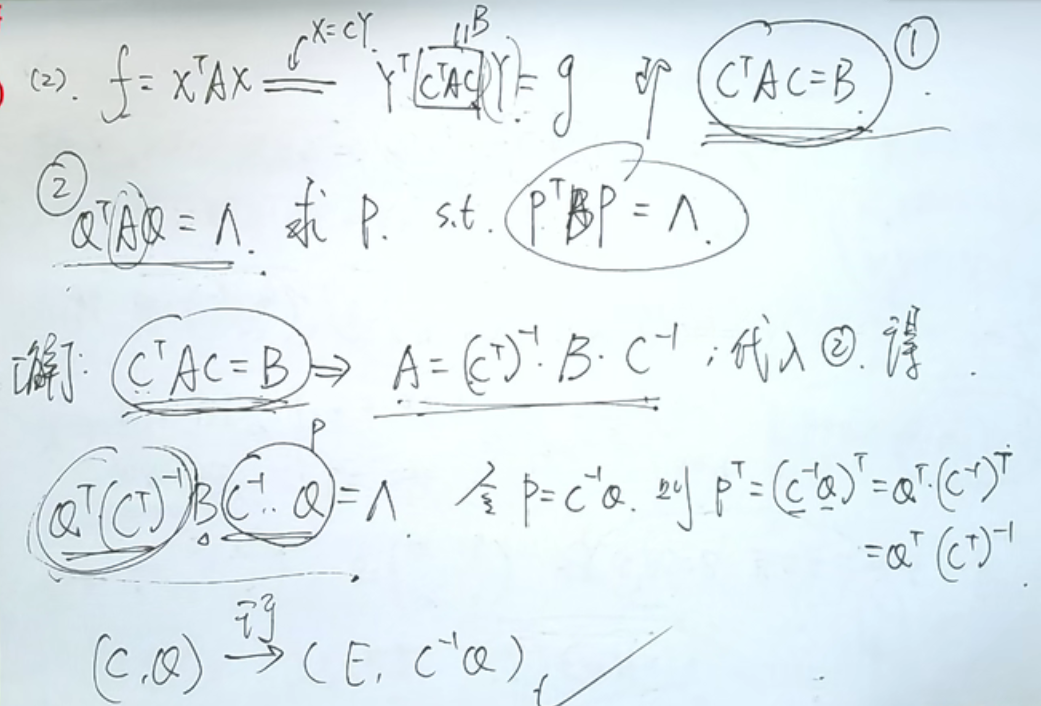 (2). f = XᵀAX ══ X=CY. Yᵀ(CᵀAC)Y = g 即 CᵀAC=B. ①
‖B
② QᵀAQ = Λ. 求 P. s.t. PᵀBP = Λ.
解: CᵀAC=B ⇒ A = (Cᵀ)⁻¹·B·C⁻¹; 代入②. 得
P
Qᵀ(Cᵀ)⁻¹BC⁻¹·Q = Λ. 令 P=C⁻¹Q. 则 Pᵀ=(C⁻¹Q)ᵀ=Qᵀ·(C⁻¹)ᵀ
=Qᵀ(Cᵀ)⁻¹
(C,Q) 行→ (E, C⁻¹Q)